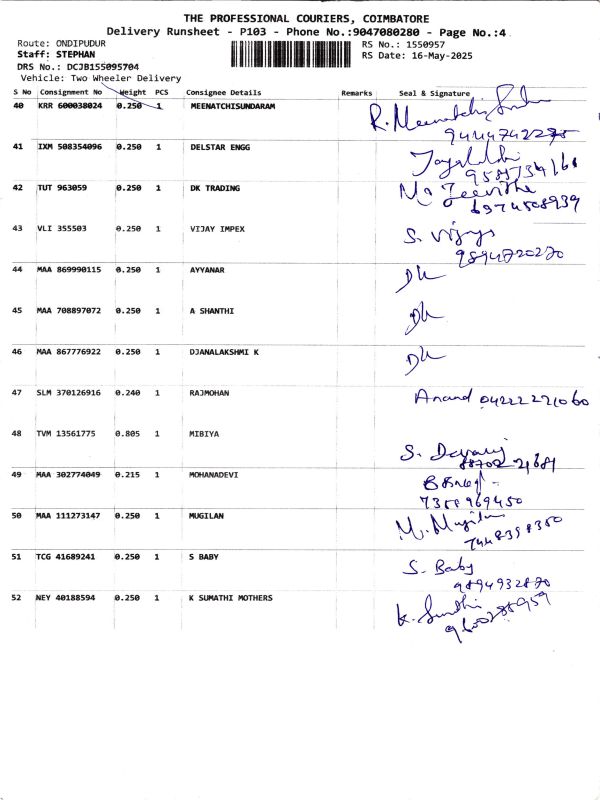 THE PROFESSIONAL COURIERS, COIMBATORE
Delivery Runsheet - P103 - Phone No.:9047080280 - Page No.:4
Route: ONDIPUDUR
Staff: STEPHAN
DRS No.: DCJB155095704
Vehicle: Two Wheeler Delivery
RS No.: 1550957
RS Date: 16-May-2025
S No Consignment No Weight PCS Consignee Details Remarks Seal & Signature
40 KRR 600038024 0.250 1 MEENATCHISUNDARAM R. Meenatchi
41 IXM 508354096 0.250 1 DELSTAR ENGG
42 TUT 963059 0.250 1 DK TRADING
43 VLI 355503 0.250 1 VIJAY IMPEX S. Vijaya
9894720270
44 MAA 869990115 0.250 1 AYYANAR
45 MAA 708897072 0.250 1 A SHANTHI
46 MAA 867776922 0.250 1 DJANALAKSHMI K
47 SLM 370126916 0.240 1 RAJMOHAN Anand 04222271060
48 TVM 13561775 0.805 1 MIBIYA
49 MAA 302774049 0.215 1 MOHANADEVI
7358969450
50 MAA 111273147 0.250 1 MUGILAN M. Mugilan
7448398350
51 TCG 41689241 0.250 1 S BABY S. Baby
9894932870
52 NEY 40188594 0.250 1 K SUMATHI MOTHERS K. Sumathi
9600288959